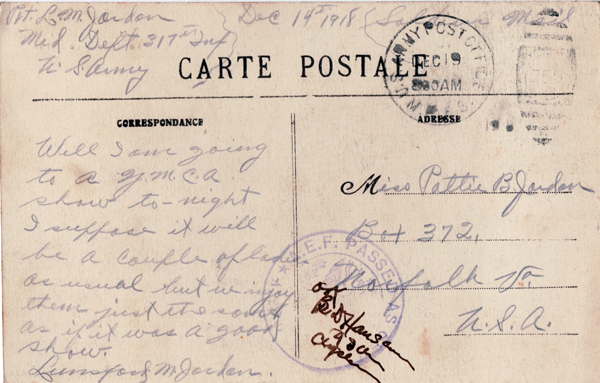 Pvt. L. M. Jordan
Med. Dept. 317th Inf
U S Army
Dec 14th 1918
Soldiers Mail
CARTE POSTALE
U.S. ARMY POST OFFICE
DEC 19
AM
CORRESPONDANCE
ADRESSE
Well I am going
to a Y.M.C.A.
show to-night
I suppose it will
be a couple of ladies
as usual but we injoy
them just the same
as if it was a good
show.
Lunsford M. Jordan.
Miss Pattie B. Jordan
Box 372,
Norfolk Va.
U.S.A.
A.E.F. PASSED AS
OK